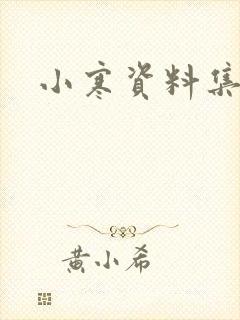 小寒資料集
黄小希